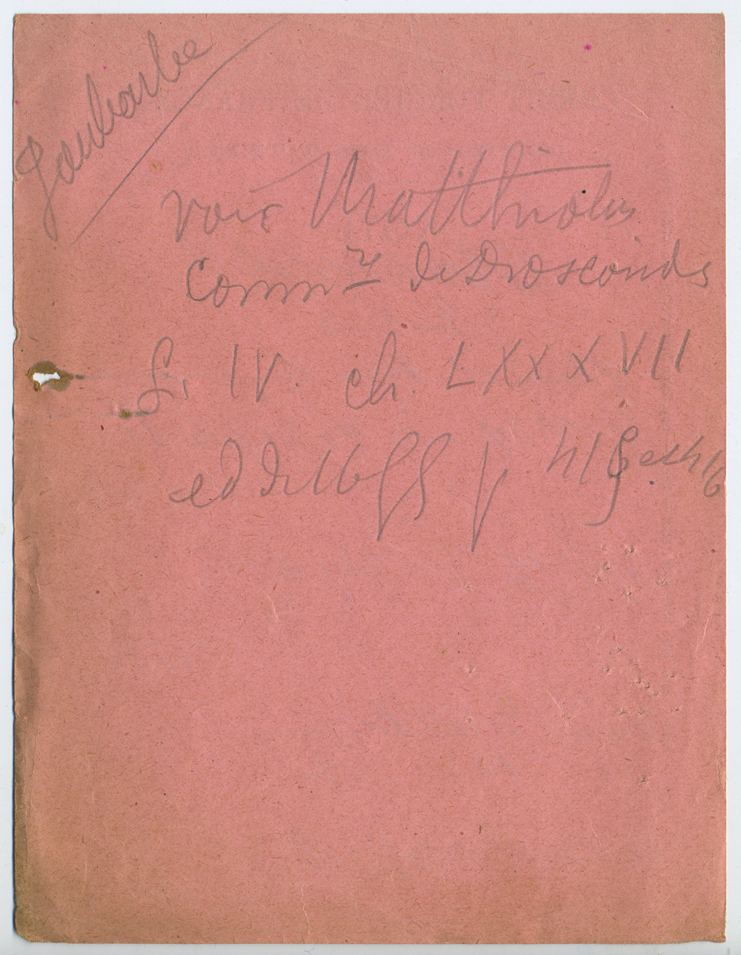 Joubarbe
voir Matthiolus
Comm re de Dioscoride
L. IV. ch. LXXXVII
ed de 1655 p. 415 et 416